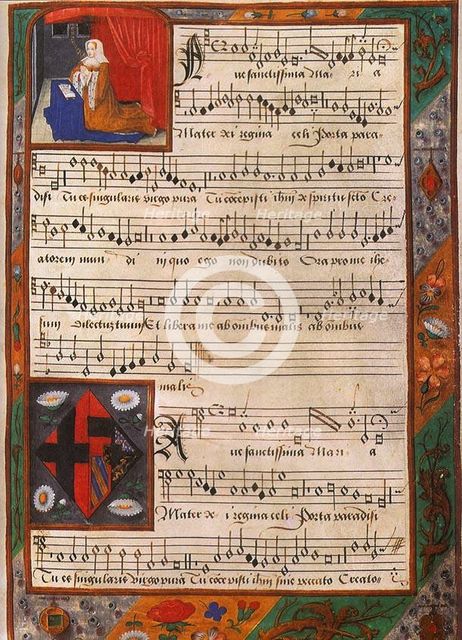 Ave sanctissima Maria
Mater dei regina celi Porta para
disi Tu es singularis virgo pura Tu cõcepisti ihm de spiritu scto Cre
atorem mun di in quo ego non dubito Ora pro me ihe
sum dilectus tuum Et libera me ab omnibus malis ab omnibus
malis
Ave sanctissima Maria
Mater dei regina celi Porta paradisi
Tu es singularis virgo pura Tu cõcepisti ihm sine peccato Creator
Heritage
Heritage
Heritage
Heritage
Heritage
Heritage